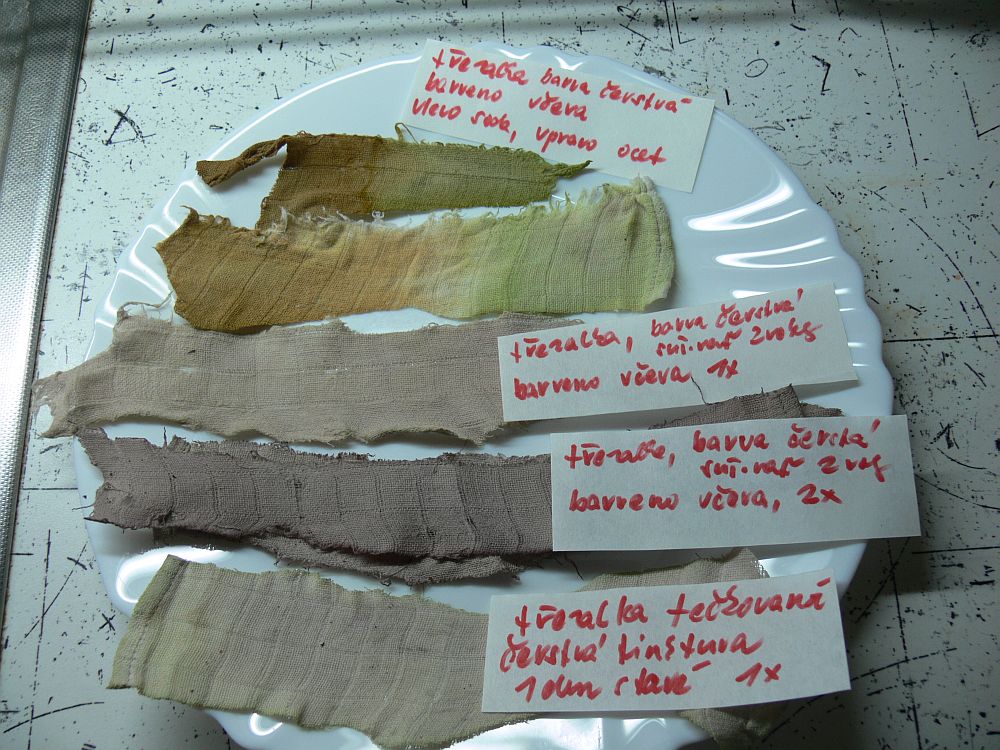 třezalka barva čerstvá
barveno včera
vlevo soda, vpravo ocet
třezalka, barva čerstvá
suš. nať 2 roky
barveno včera 1x
třezalka, barva čerstvá
suš. nať 2 roky
barveno včera, 2x
třezalka tečkovaná
čerstvá tinktura
1 den staré 1x